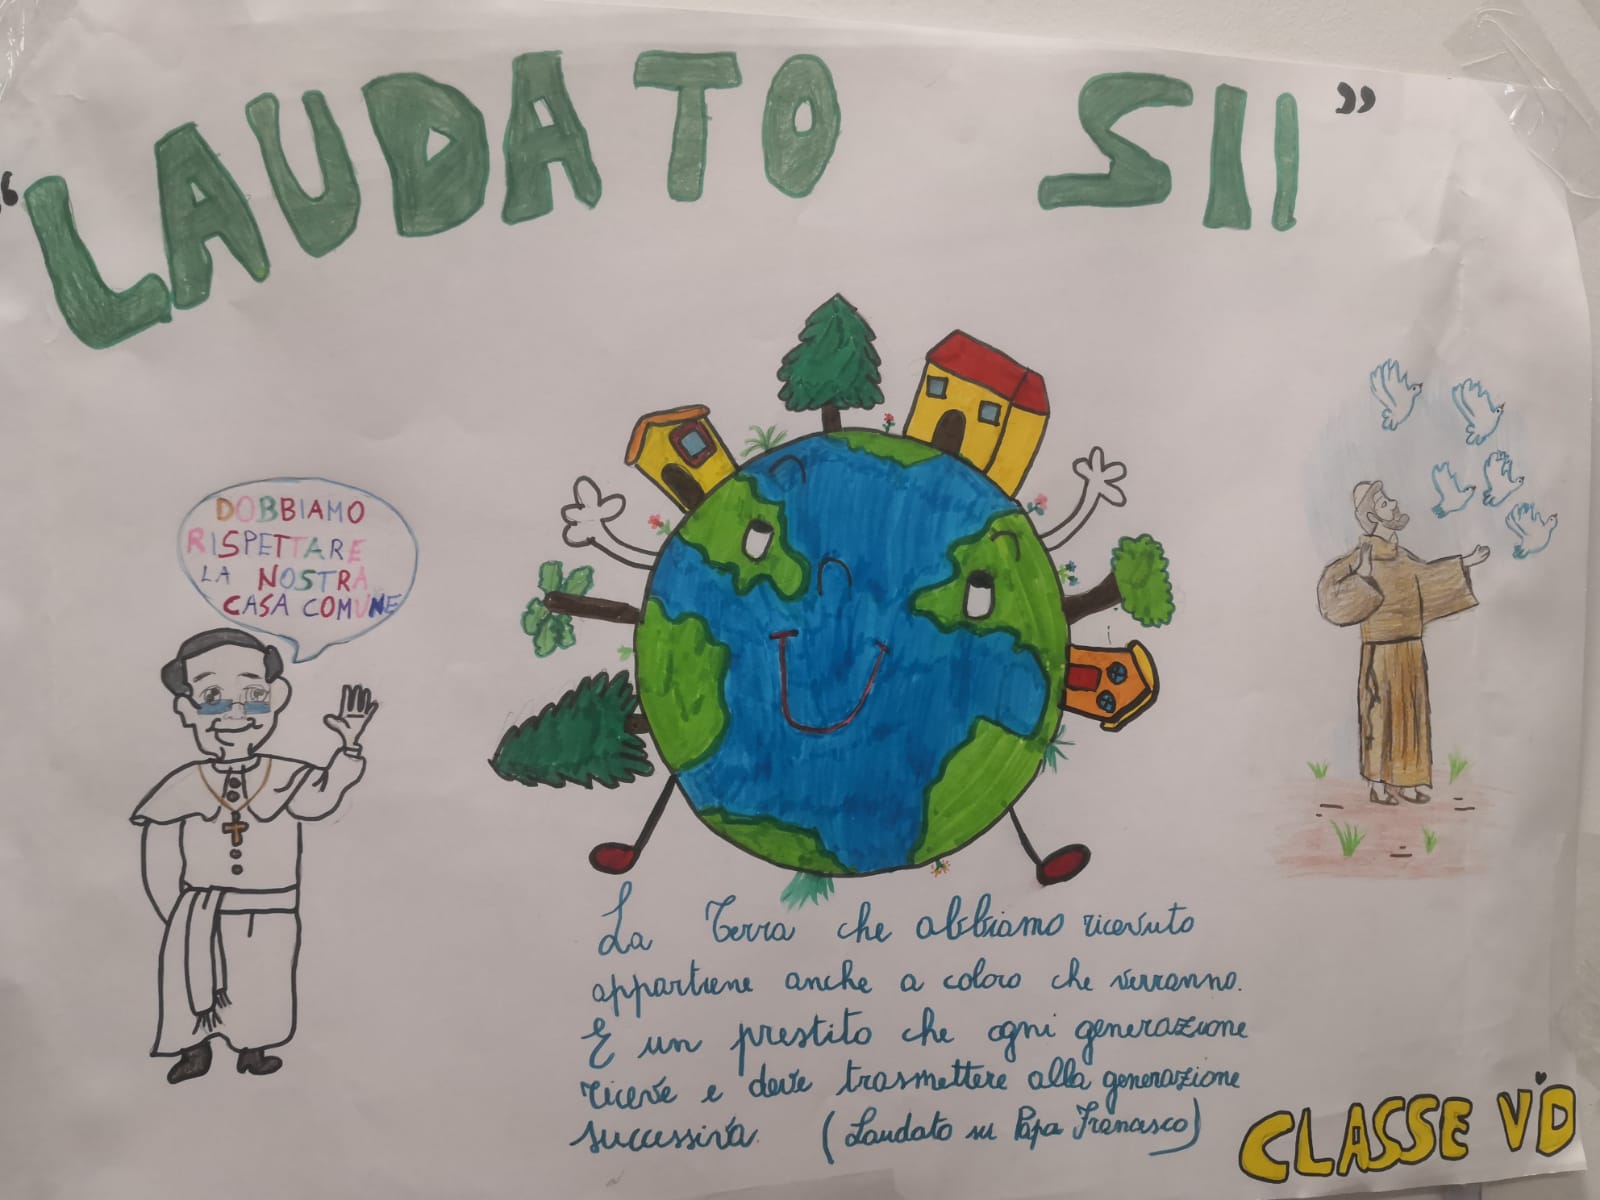 “LAUDATO SII”
DOBBIAMO
RISPETTARE
LA NOSTRA
CASA COMUNE
La Terra che abbiamo ricevuto
appartiene anche a coloro che verranno.
E un prestito che ogni generazione
riceve e deve trasmettere alla generazione
successiva. (Laudato su Papa Francesco)
CLASSE VD